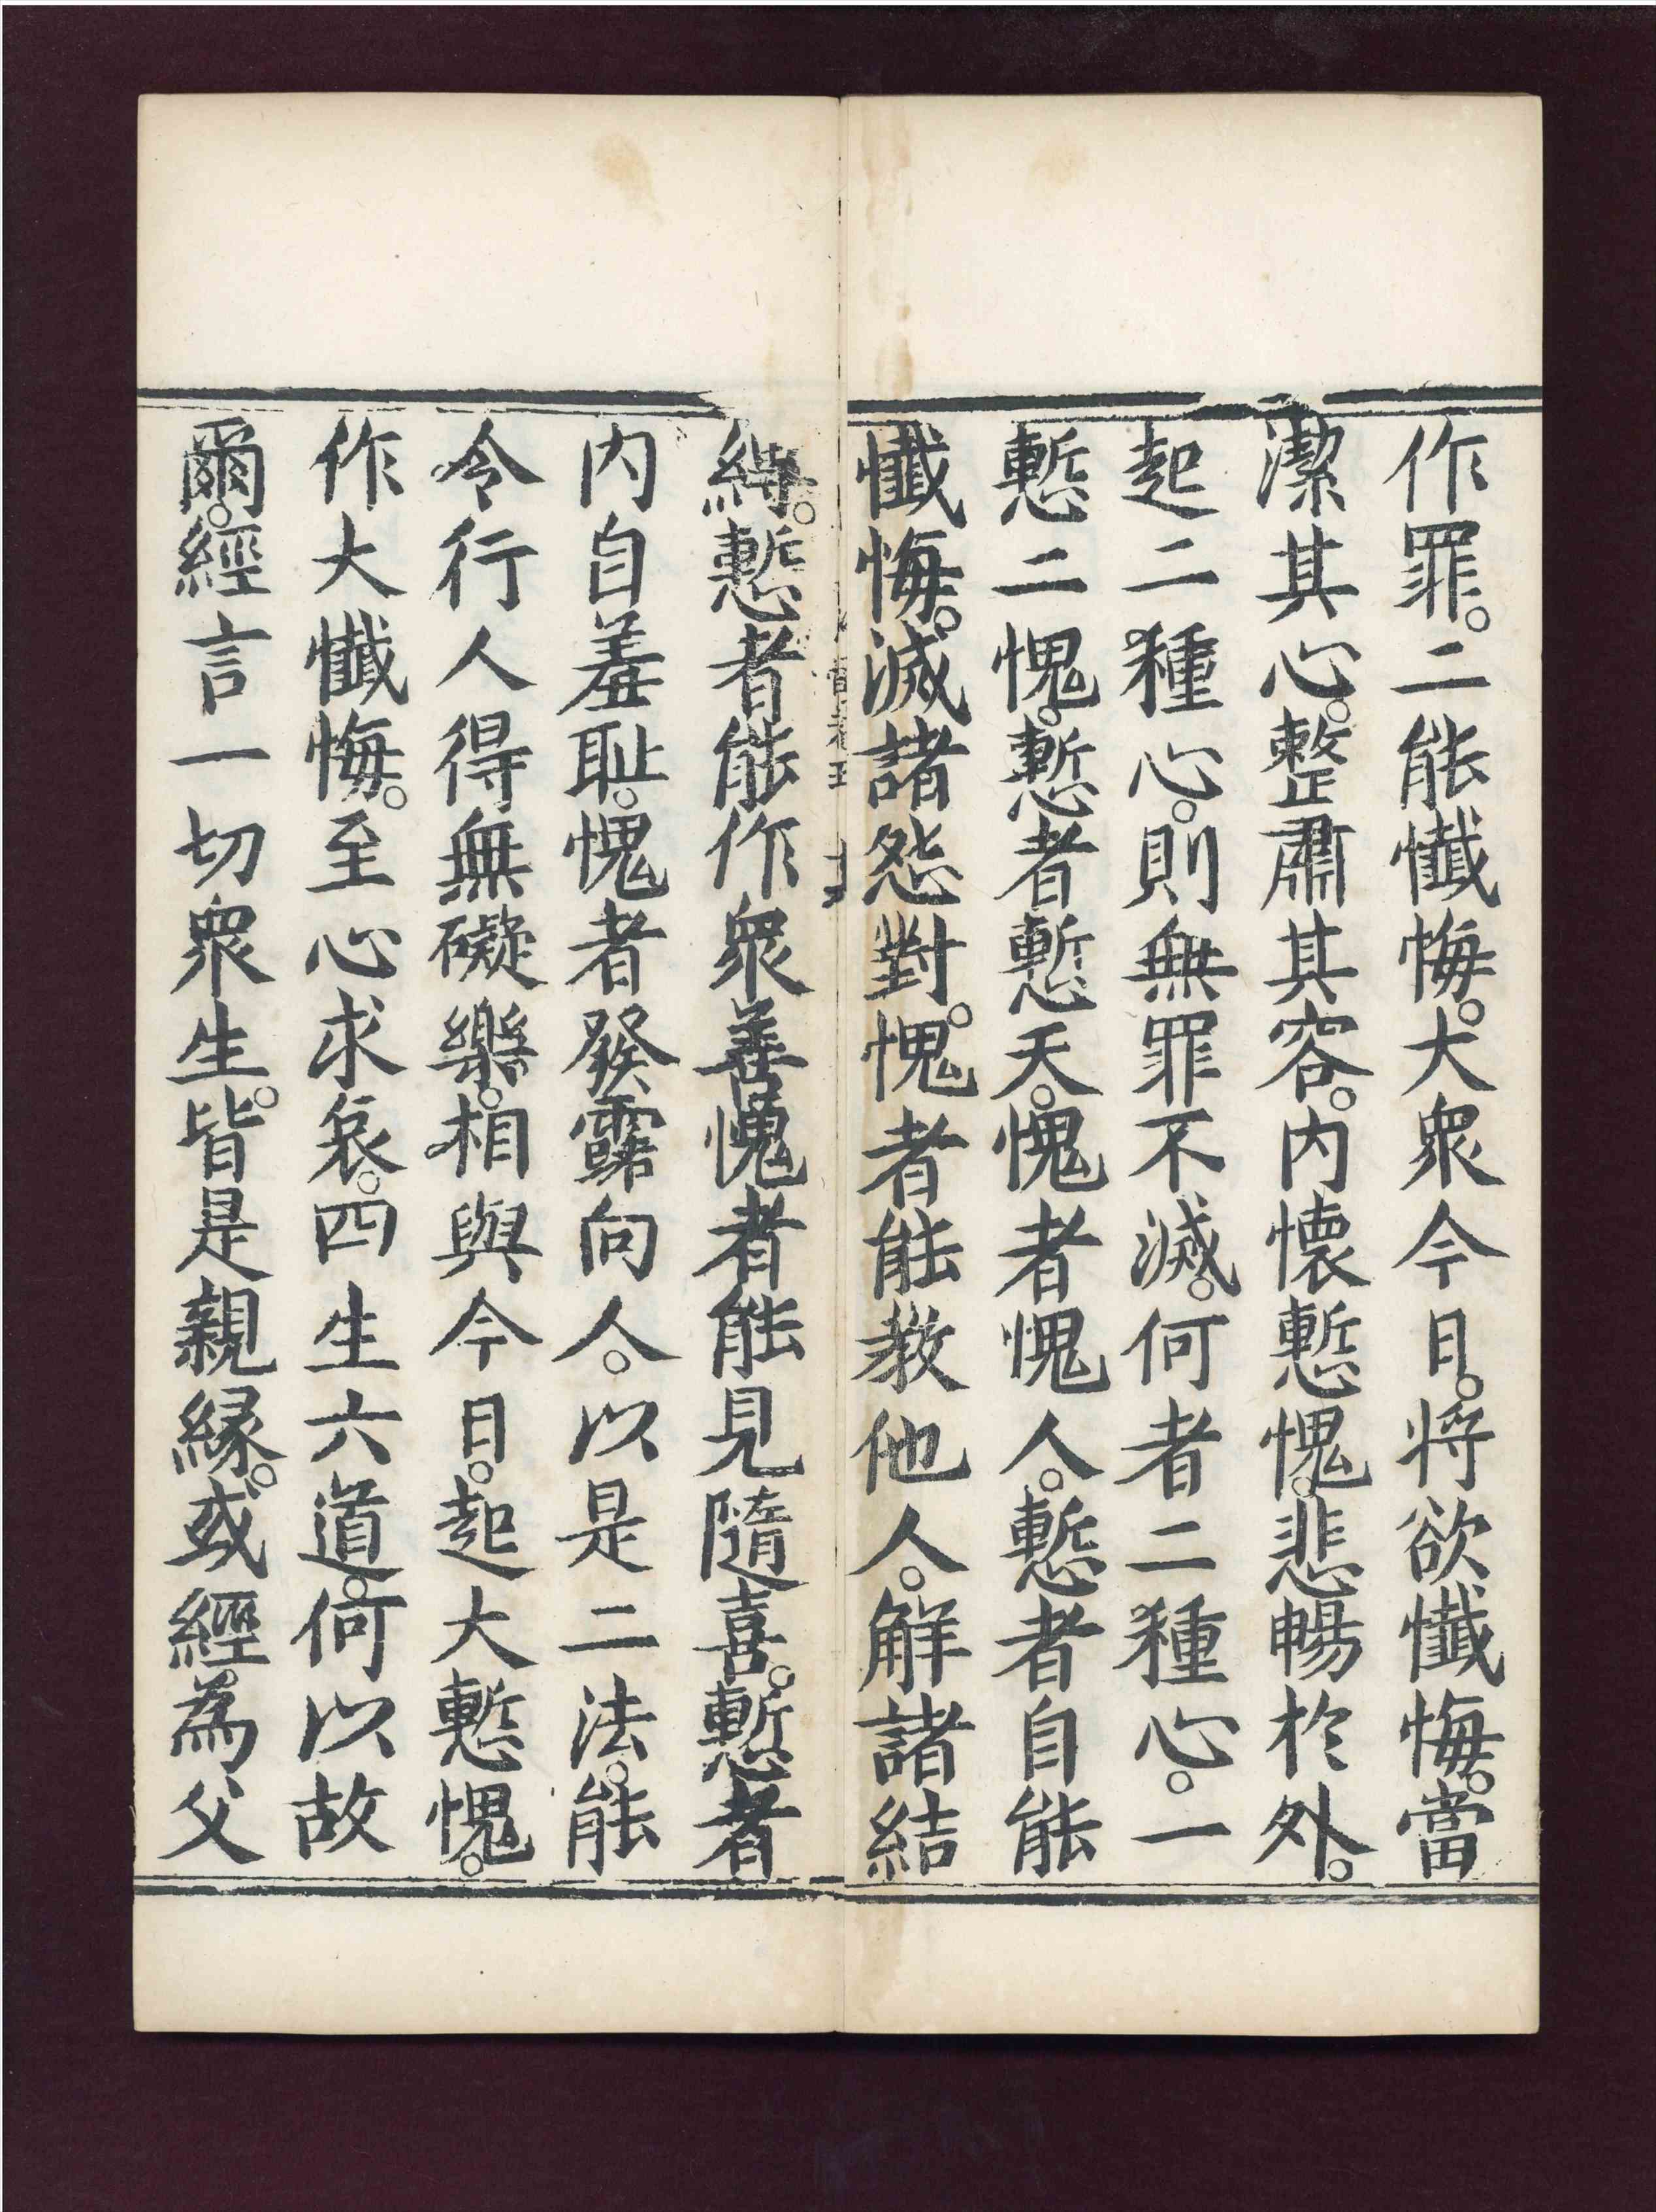 作罪。二能懺悔。大衆今日。将欲懺悔。當
潔其心。整肅其容。内懷慙愧。悲暢於外。
起二種心。則無罪不滅。何者二種心。一
慙二愧。慙者慙天。愧者愧人。慙者自能
懺悔。滅諸怨對。愧者能教他人。解諸結
縛。慙者能作衆善。愧者能見隨喜。慙者
内自羞耻。愧者發露向人。以是二法。能
令行人得無礙樂。相與今日。起大慙愧。
作大懺悔。至心求哀。四生六道。何以故
爾。經言一切衆生。皆是親縁。或經為父